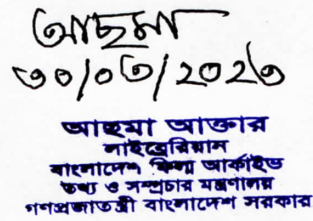 আছমা
৩০/০৩/২০২৩
আছমা আক্তার
লাইব্রেরিয়ান
বাংলাদেশ ফিল্ম আর্কাইভ
তথ্য ও সম্প্রচার মন্ত্রণালয়
গণপ্রজাতন্ত্রী বাংলাদেশ সরকার